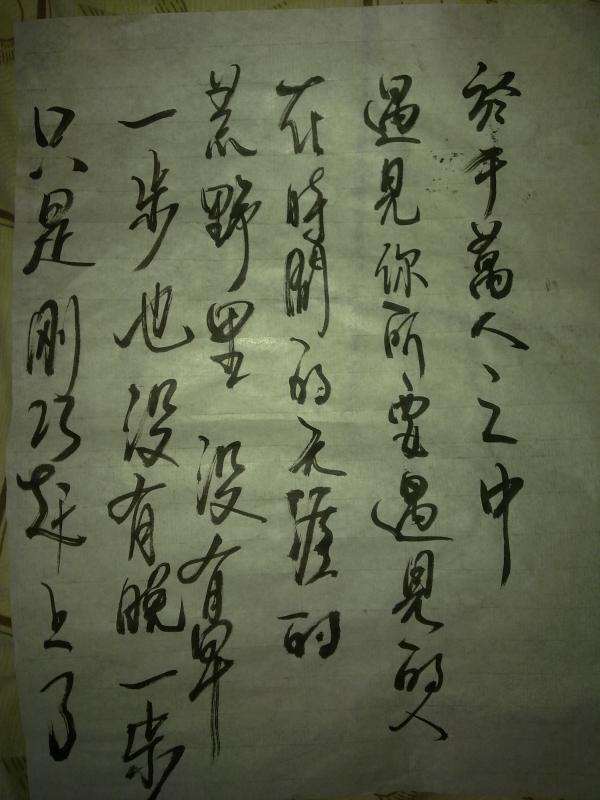 於千萬人之中
遇見你所要遇見的人
在時間的无涯的
荒野里没有早
一步也没有晚一步
只是刚巧赶上了